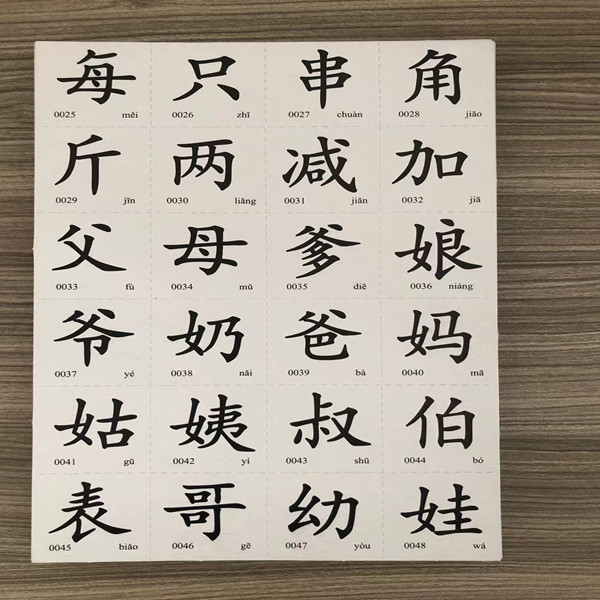 每 只 串 角
0025 měi 0026 zhī 0027 chuàn 0028 jiǎo
斤 两 减 加
0029 jīn 0030 liǎng 0031 jiǎn 0032 jiā
父 母 爹 娘
0033 fù 0034 mǔ 0035 diē 0036 niáng
爷 奶 爸 妈
0037 yé 0038 nǎi 0039 bà 0040 mā
姑 姨 叔 伯
0041 gū 0042 yí 0043 shū 0044 bó
表 哥 幼 娃
0045 biǎo 0046 gē 0047 yòu 0048 wá